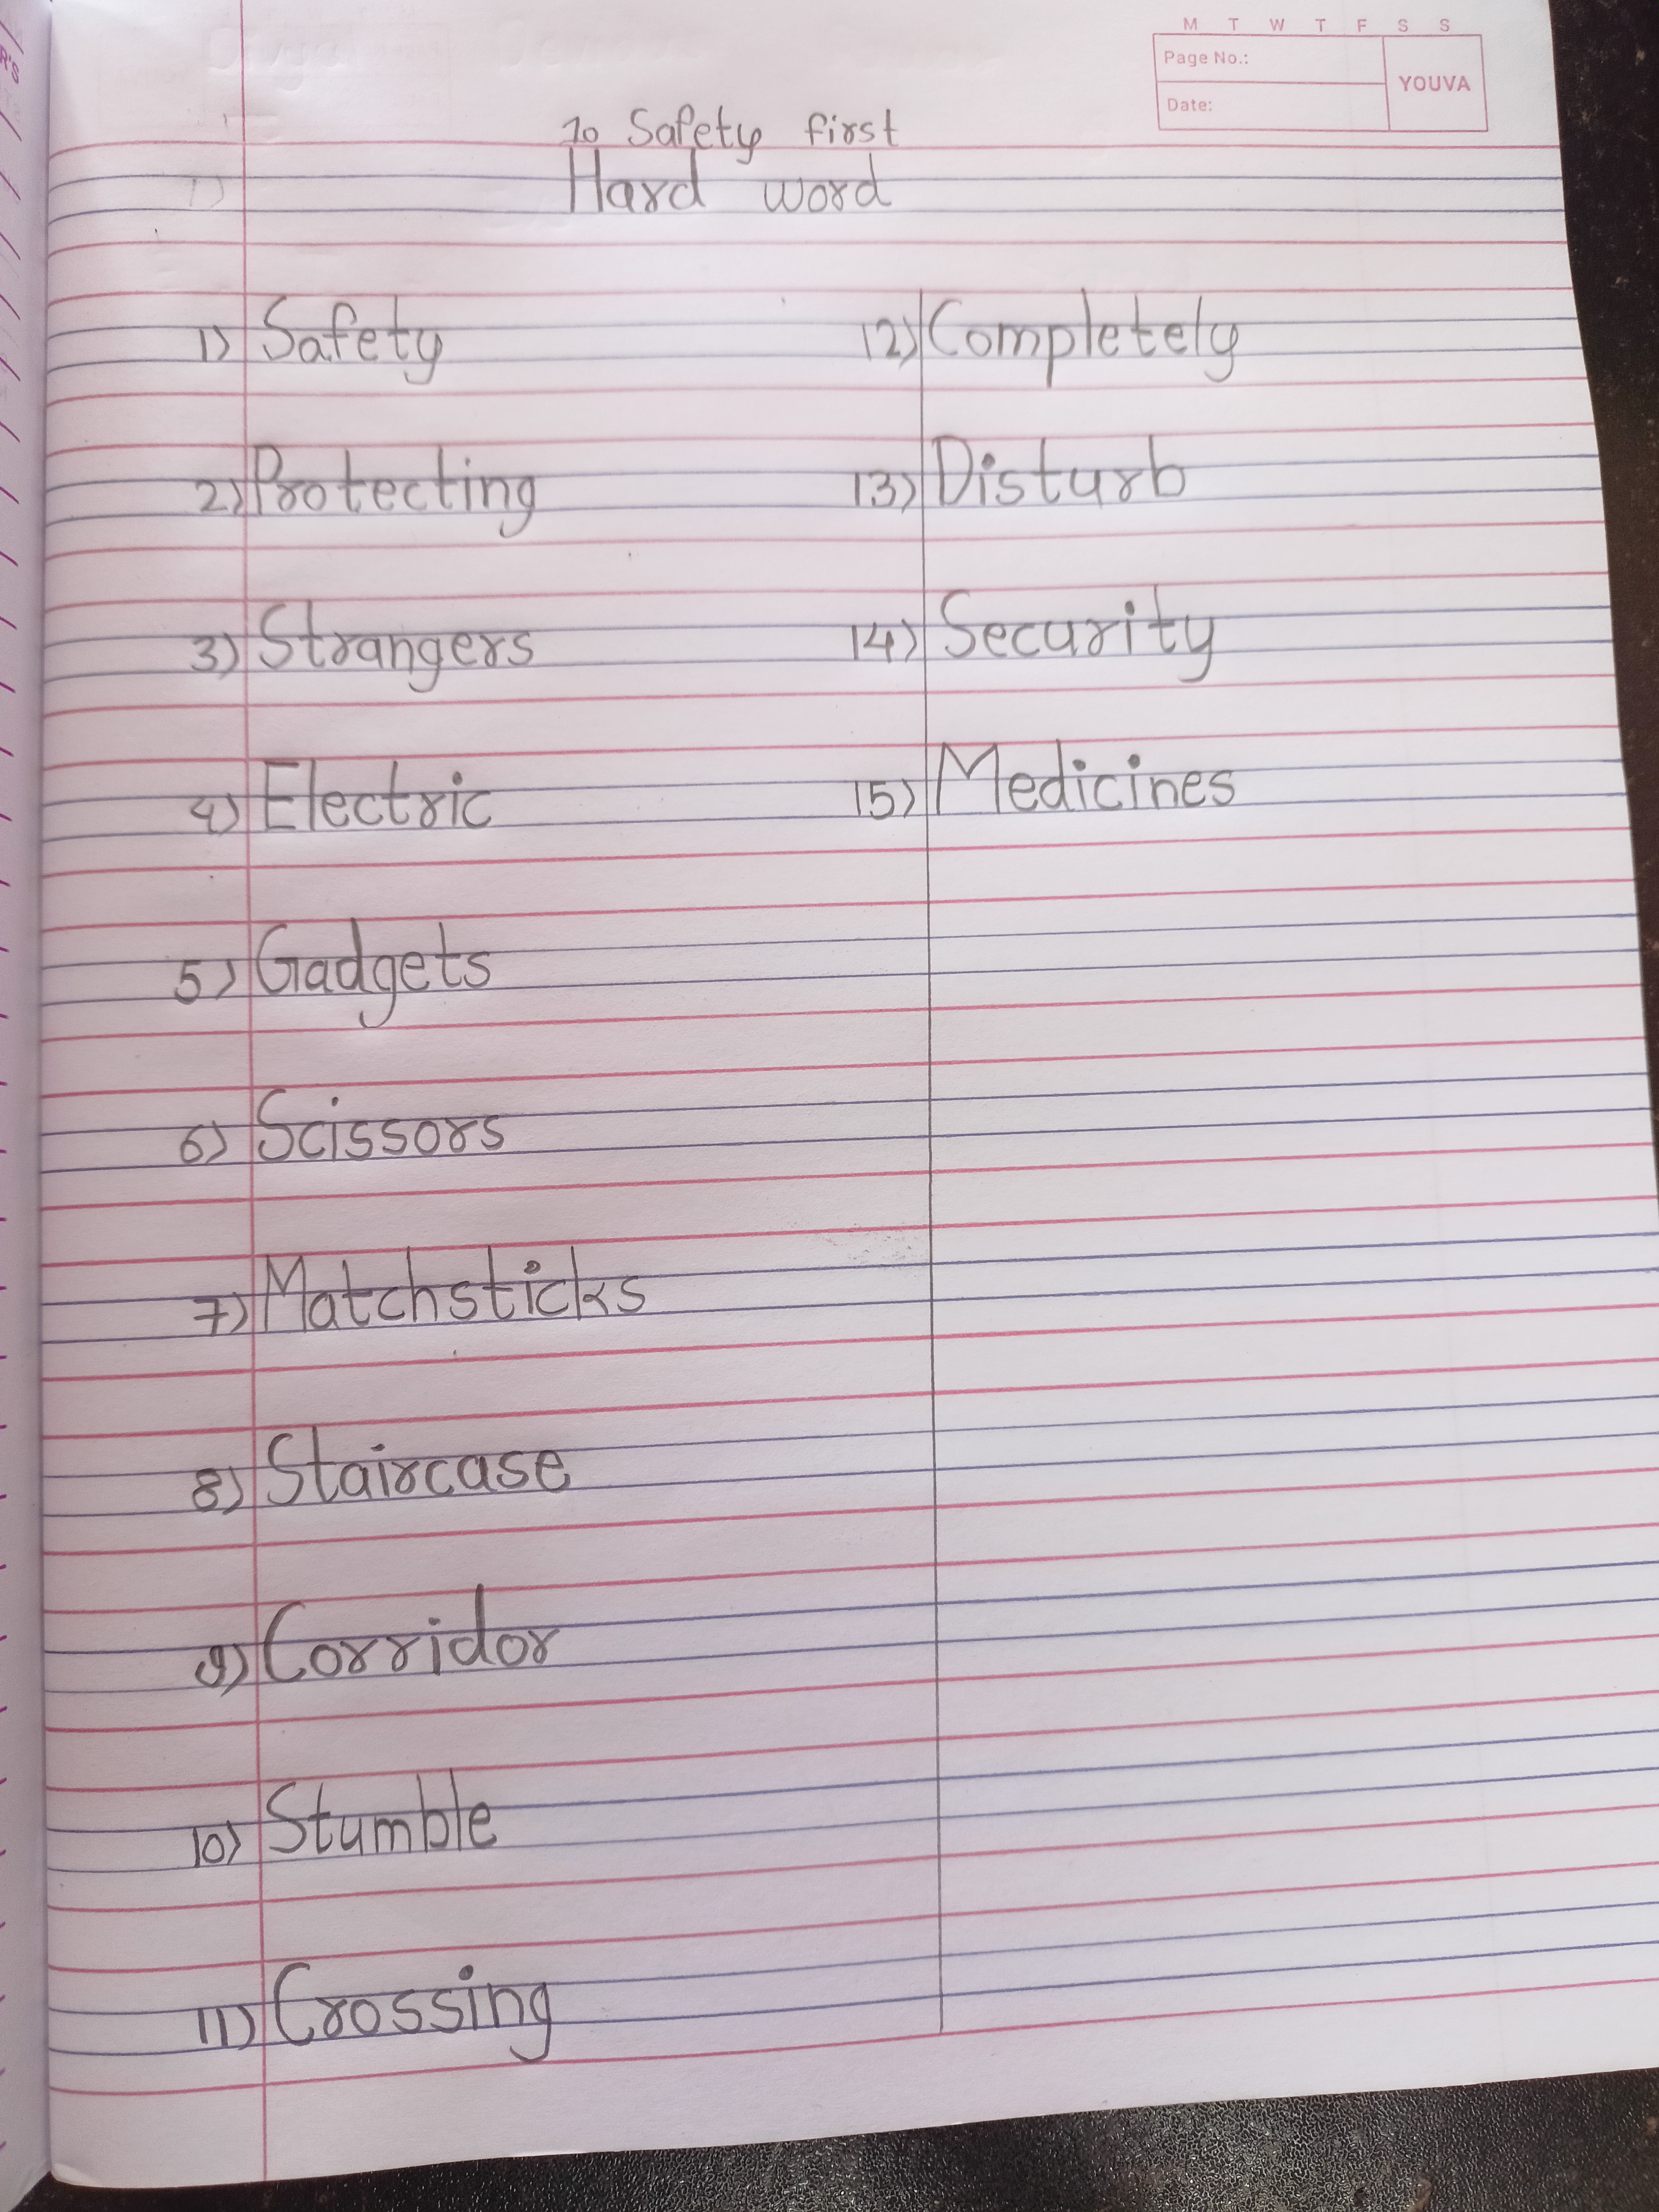 M T W T F S S
Page No.:
YOUVA
Date:
10 Safety first
Hard word
1) Safety
2) Protecting
3) Strangers
4) Electric
5) Gadgets
6) Scissors
7) Matchsticks
8) Staircase
9) Corridor
10) Stumble
11) Crossing
12) Completely
13) Disturb
14) Security
15) Medicines